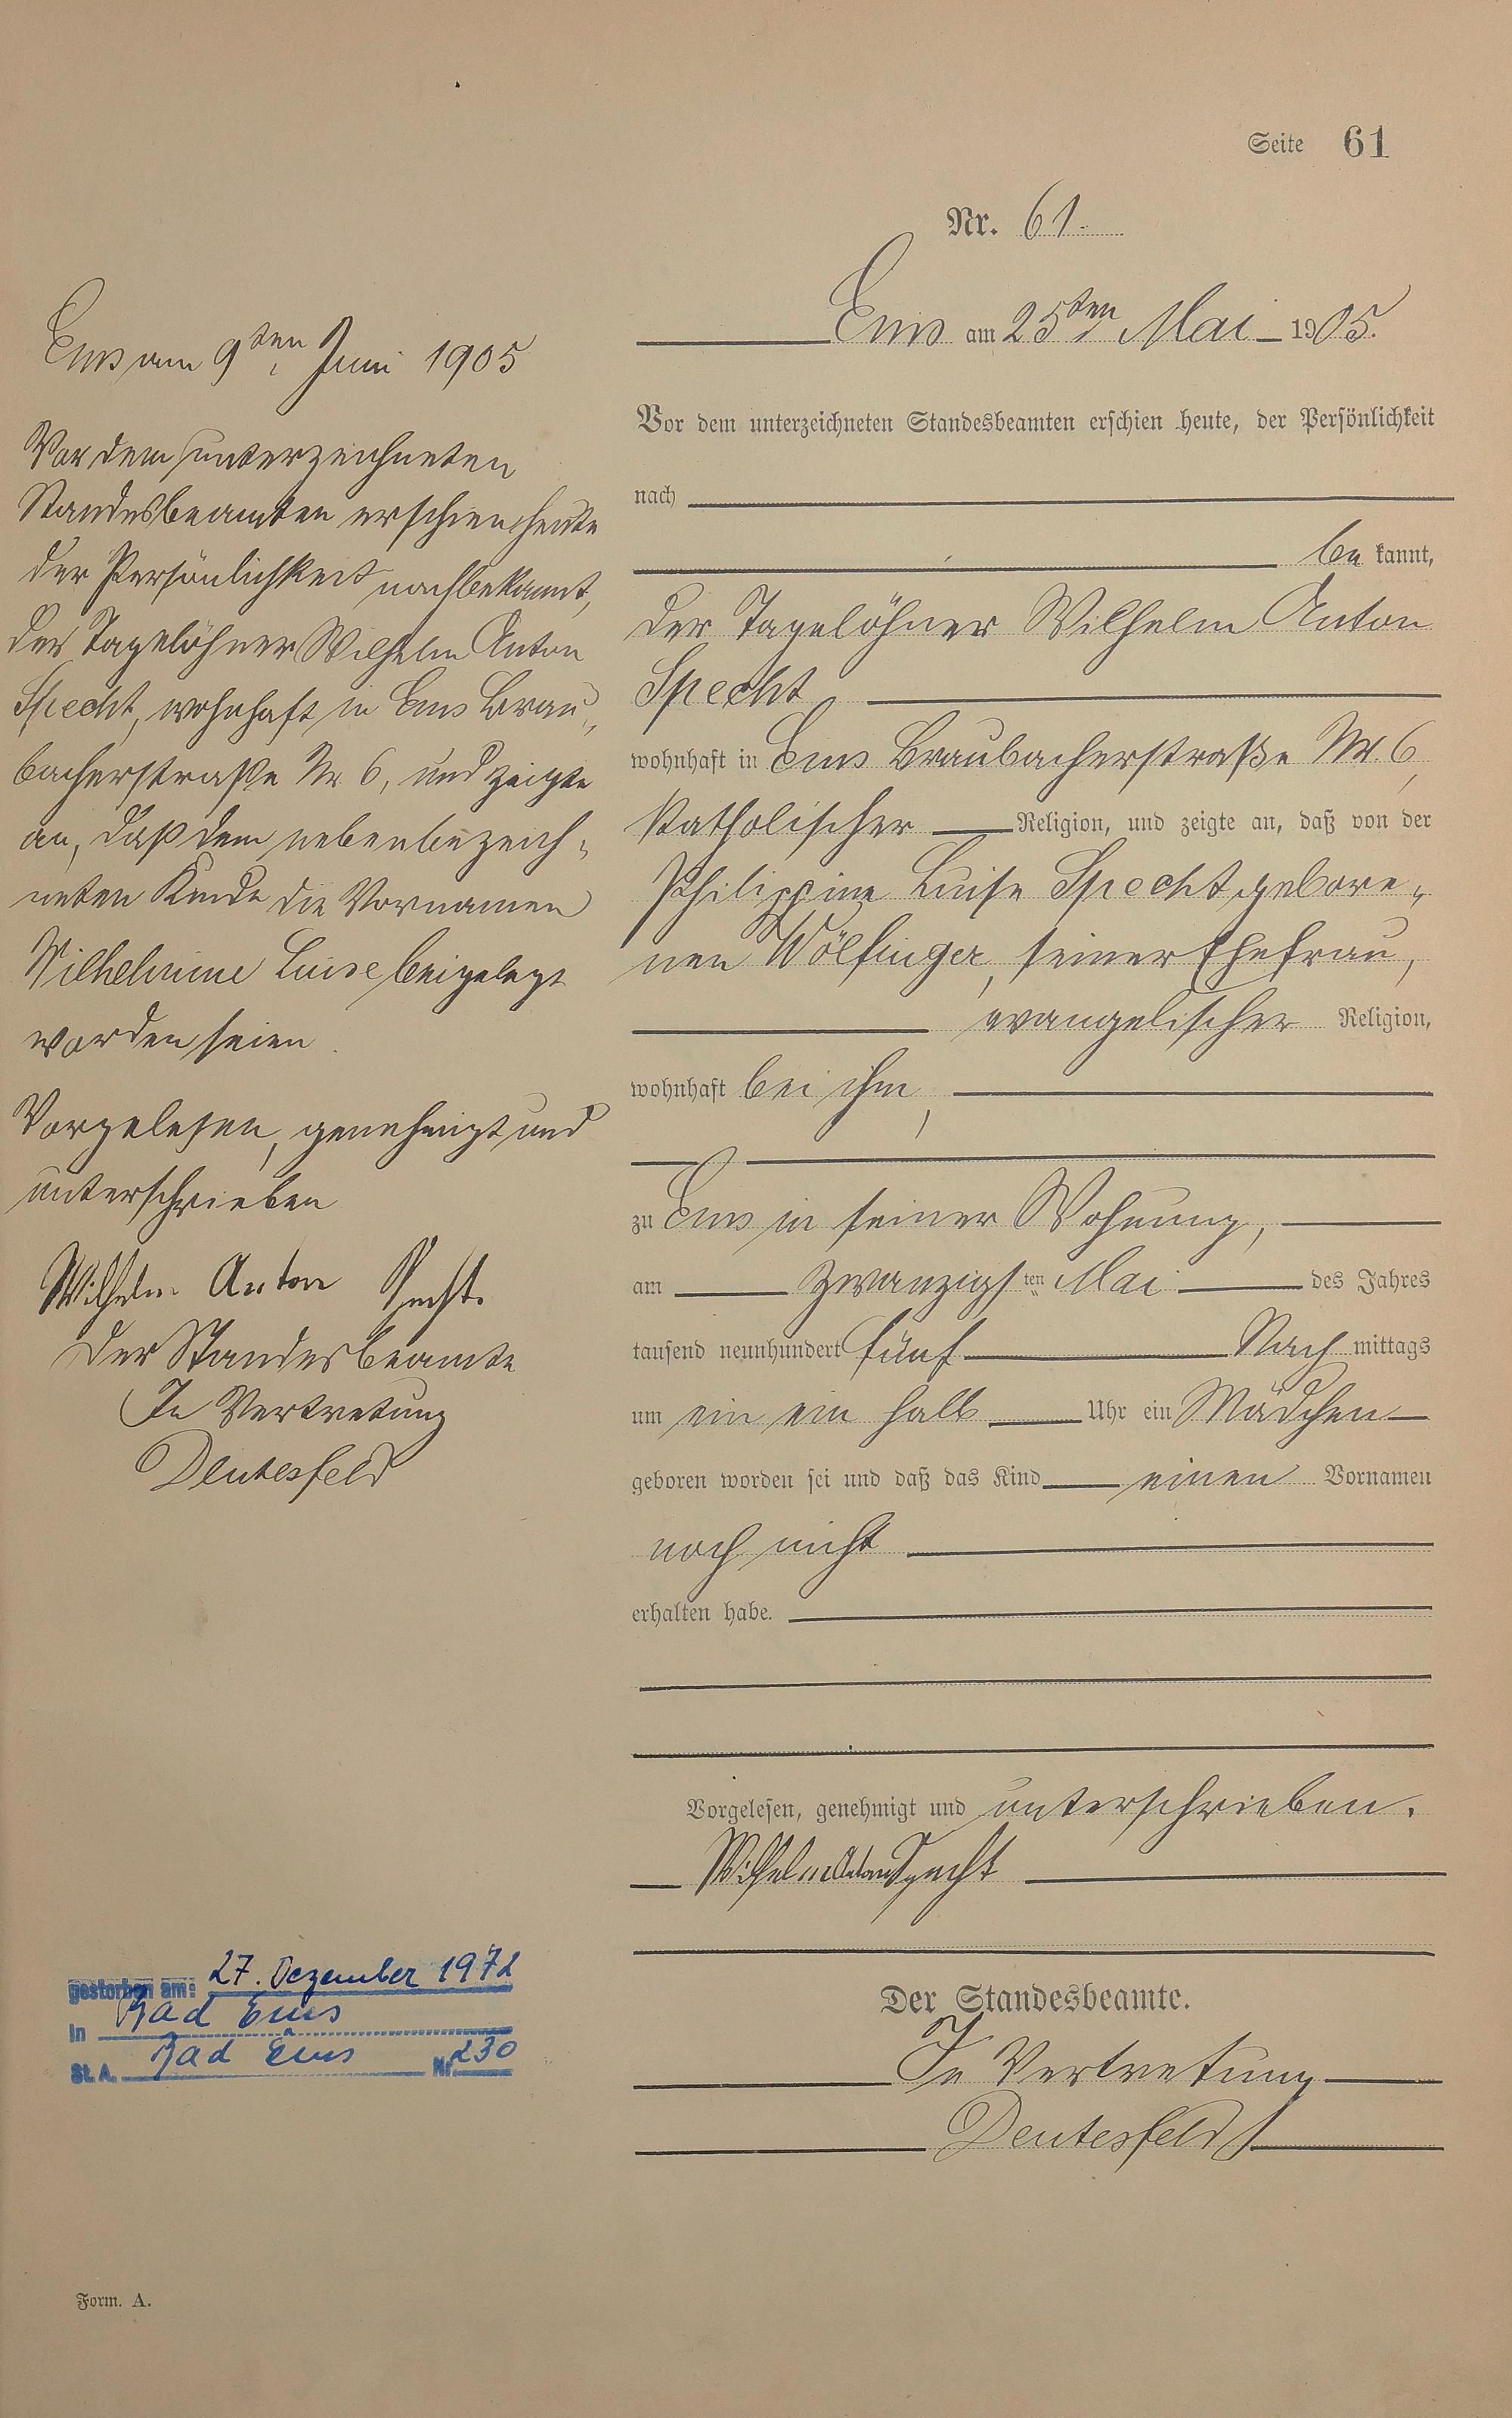 Seite 61
Nr. 61.
Ems am 25ten Mai 1905.
Vor dem unterzeichneten Standesbeamten erschien heute, der Persönlichkeit
nach
be kannt,
der Tagelöhner Wilhelm Anton
Specht
wohnhaft in Ems Braubacherstraße Nr. 6,
katholischer Religion, und zeigte an, daß von der
Philippine Luise Specht gebore„
nen Wölfinger, seiner Ehefrau,
evangelischer Religion,
wohnhaft bei ihm,
zu Ems in seiner Wohnung,
am zwanzigsten Mai des Jahres
tausend neunhundert fünf Nach mittags
um ein ein halb Uhr ein Mädchen
geboren worden sei und daß das Kind einen Vornamen
noch nicht
erhalten habe.
Vorgelesen, genehmigt und unterschrieben.
Wilhelm Anton Specht
Der Standesbeamte.
In Vertretung
Deutesfeld
Ems am 9ten Juni 1905
Vor dem unterzeichneten
Standesbeamten erschien heute
der Persönlichkeit nach bekannt,
der Tagelöhner Wilhelm Anton
Specht, wohnhaft in Ems Brau„
bacherstraße Nr. 6, und zeigte
an, daß dem nebenbezeich„
neten Kinde die Vornamen
Wilhelmine Luise beigelegt
worden seien.
Vorgelesen, genehmigt und
unterschrieben
Wilhelm Anton Specht.
Der Standesbeamte
In Vertretung
Deutesfeld
gestorben am: 27. Dezember 1972
in Bad Ems
St. A. Bad Ems Nr. 230
Form. A.